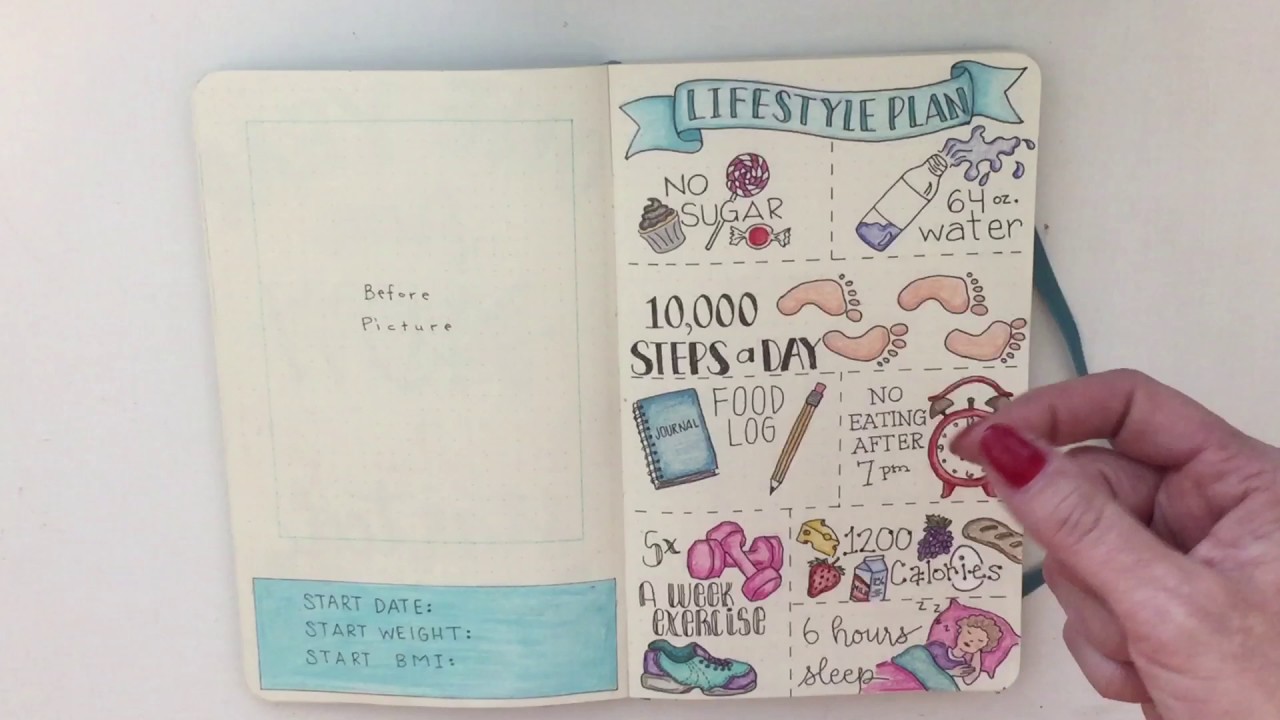 Before
Picture
START DATE:
START WEIGHT:
START BMI:
LIFESTYLE PLAN
NO
SUGAR
64 oz.
water
10,000
STEPS a DAY
JOURNAL
FOOD
LOG
NO
EATING
AFTER
7pm
5x
A WEEK
EXERCISE
1200
Calories
MILK
z z z
6 hours
sleep